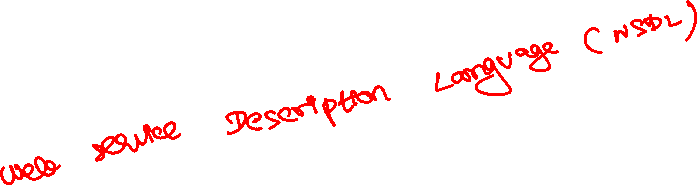 Web service Description Language (WSDL)